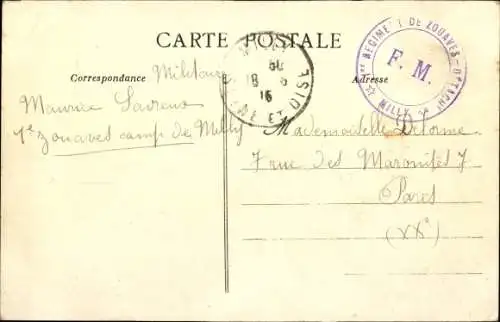 CARTE POSTALE
Correspondance Militaire
Adresse
MILLY
18 6
16
SEINE ET OISE
REGIMENT DE ZOUAVES - DÉTACHT
MILLY
F. M.
Maurice
1er Zouaves camp de Milly
Mademoiselle Delorme
7 rue des Maronites 7
Paris
(XXe)